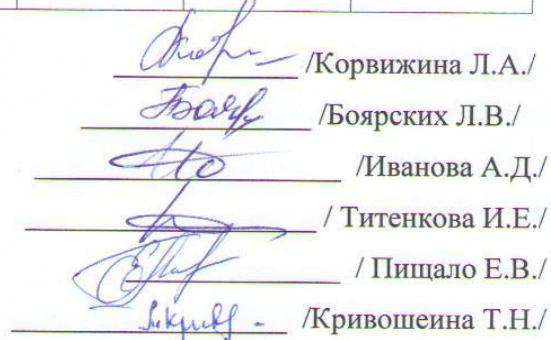 /Корвижина Л.А./
/Боярских Л.В./
/Иванова А.Д./
/ Титенкова И.Е./
/ Пищало Е.В./
/Кривошеина Т.Н./